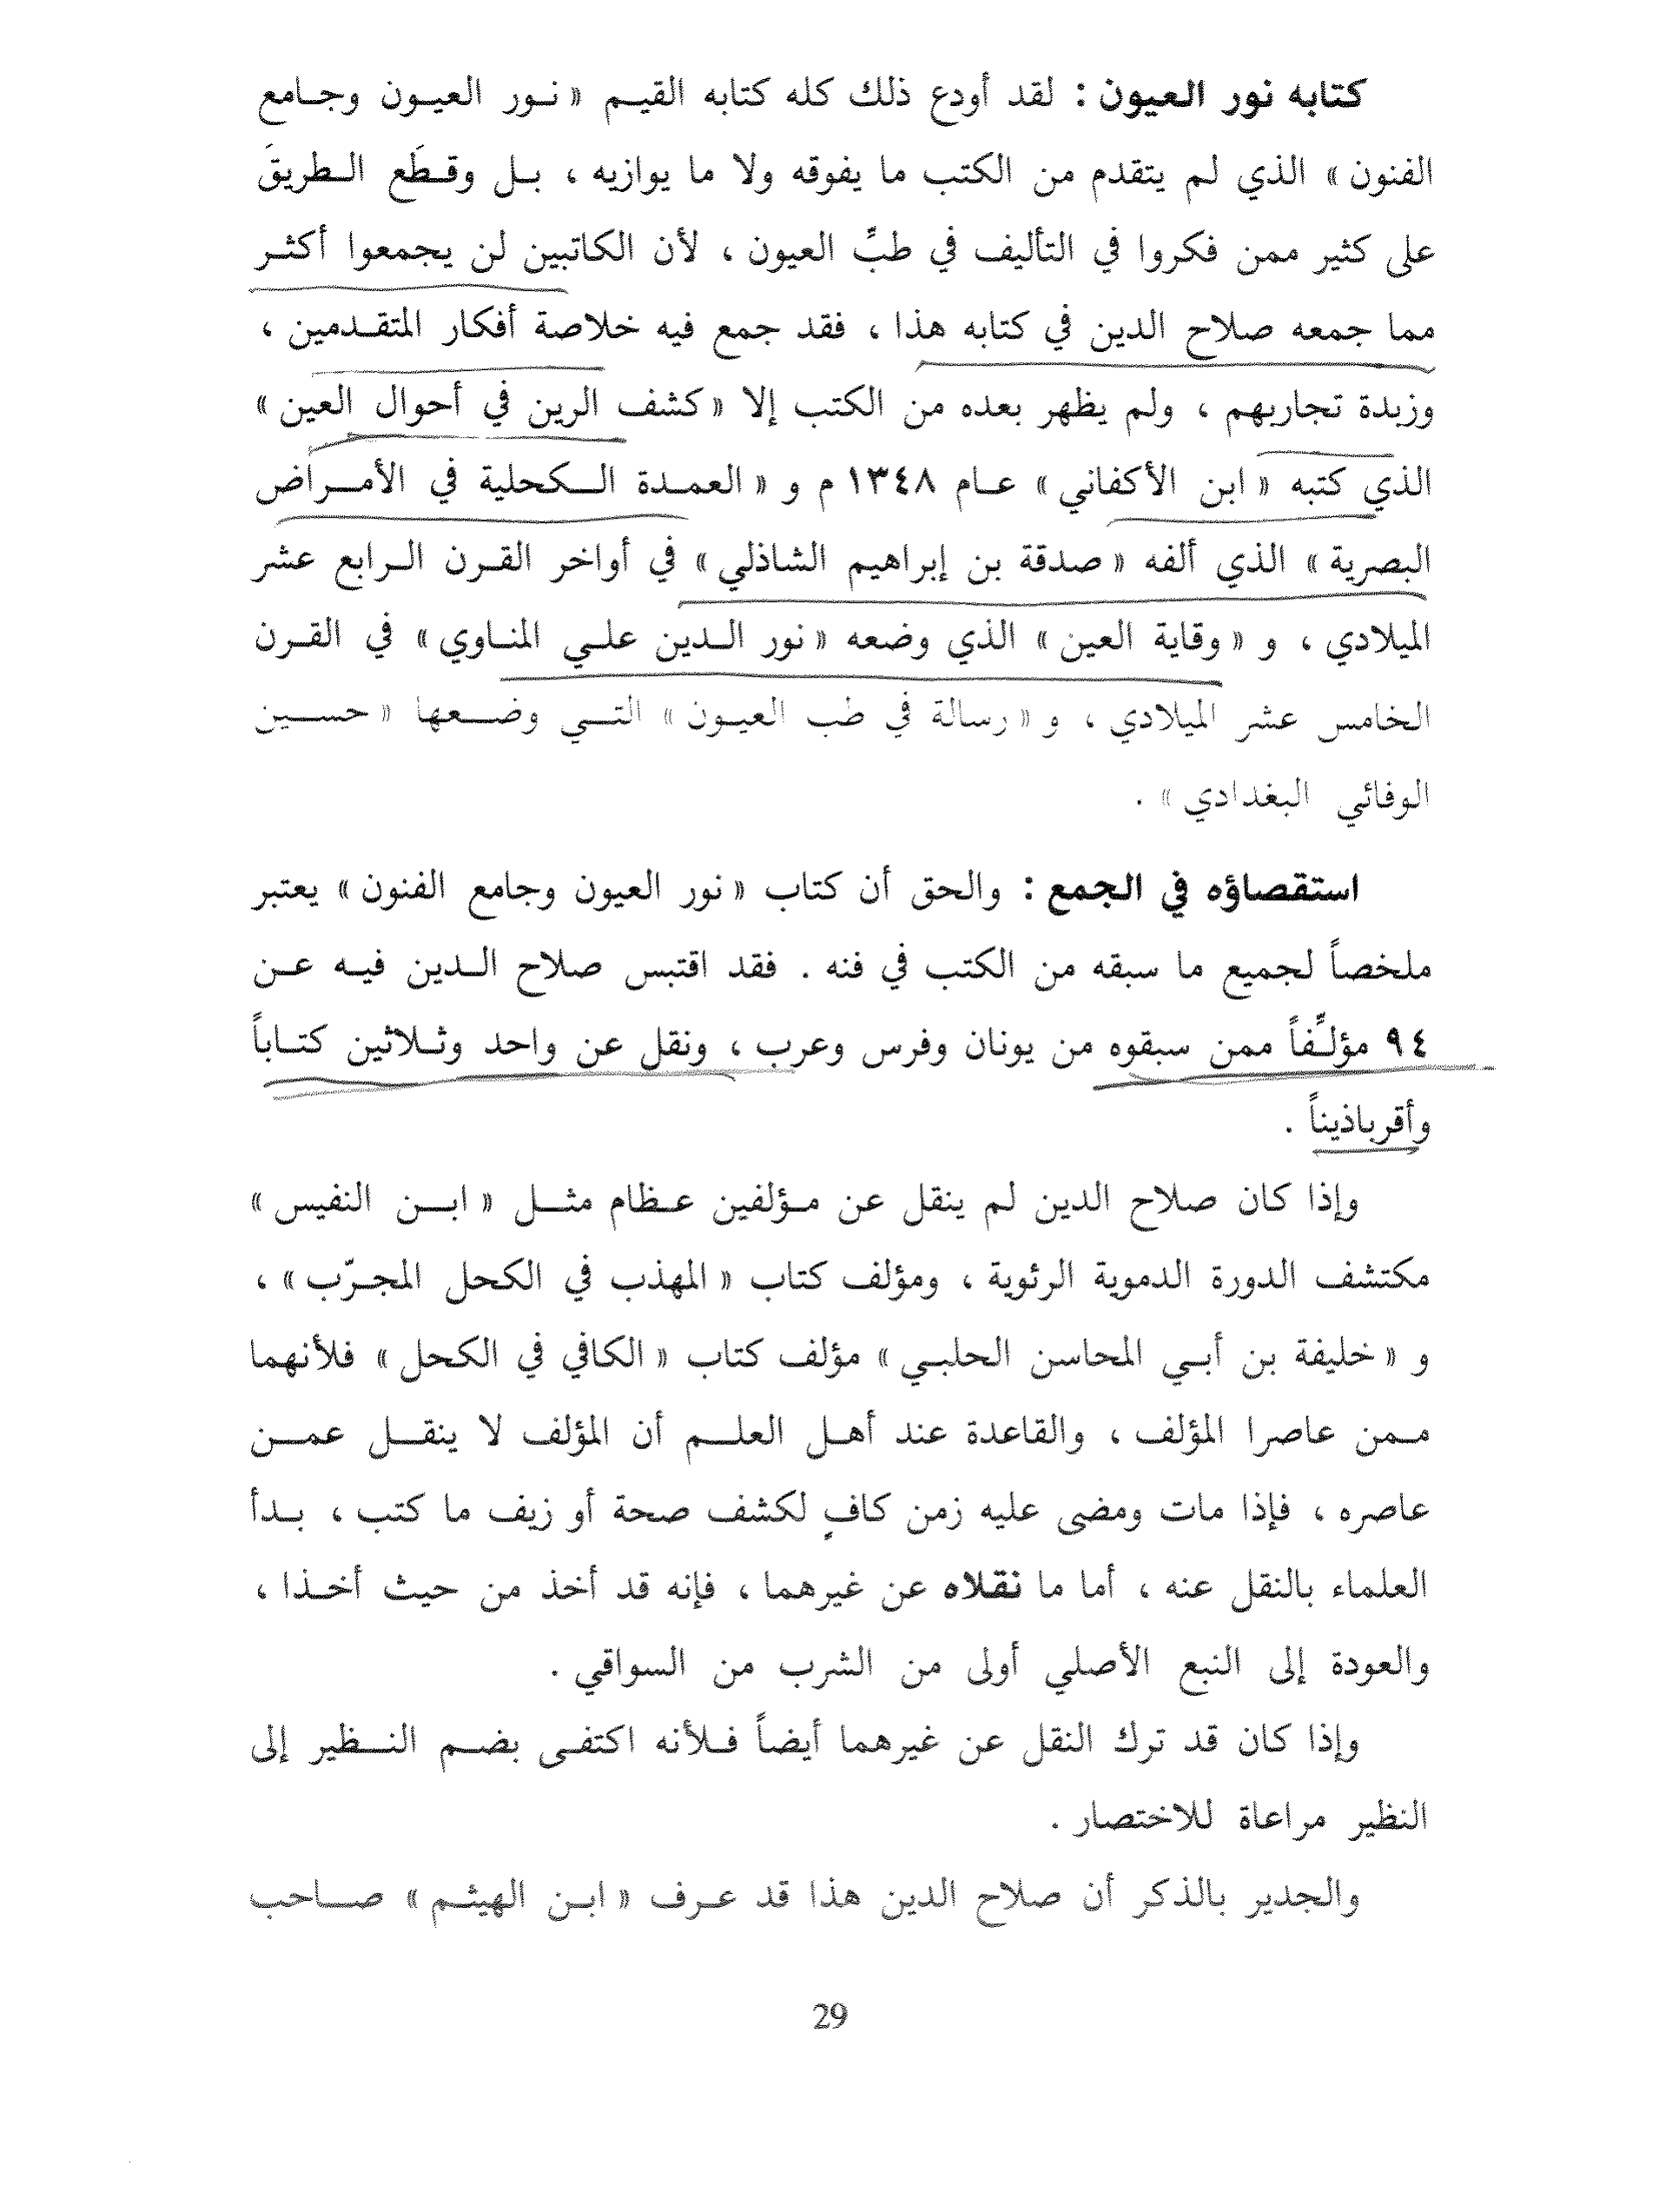 كتابه نور العيون : لقد أودع ذلك كله كتابه القيم « نور العيون وجامع
الفنون » الذي لم يتقدم من الكتب ما يفوقه ولا ما يوازيه ، بل وقطَع الطريقَ
على كثير ممن فكروا في التأليف في طبِّ العيون ، لأن الكاتبين لن يجمعوا أكثر
مما جمعه صلاح الدين في كتابه هذا ، فقد جمع فيه خلاصة أفكار المتقدمين ،
وزبدة تجاربهم ، ولم يظهر بعده من الكتب إلا « كشف الرين في أحوال العين »
الذي كتبه « ابن الأكفاني » عام ١٣٤٨ م و « العمدة الكحلية في الأمراض
البصرية » الذي ألفه « صدقة بن إبراهيم الشاذلي » في أواخر القرن الرابع عشر
الميلادي ، و « وقاية العين » الذي وضعه « نور الدين علي المناوي » في القرن
الخامس عشر الميلادي ، و « رسالة في طب العيون » التي وضعها « حسين
الوفائي البغدادي » .
استقصاؤه في الجمع : والحق أن كتاب « نور العيون وجامع الفنون » يعتبر
ملخصاً لجميع ما سبقه من الكتب في فنه . فقد اقتبس صلاح الدين فيه عن
٩٤ مؤلِّفاً ممن سبقوه من يونان وفرس وعرب ، ونقل عن واحد وثلاثين كتاباً
وأقرباذيناً .
وإذا كان صلاح الدين لم ينقل عن مؤلفين عظام مثل « ابن النفيس »
مكتشف الدورة الدموية الرئوية ، ومؤلف كتاب « المهذب في الكحل المجرّب » ،
و « خليفة بن أبي المحاسن الحلبي » مؤلف كتاب « الكافي في الكحل » فلأنهما
ممن عاصرا المؤلف ، والقاعدة عند أهل العلم أن المؤلف لا ينقل عمن
عاصره ، فإذا مات ومضى عليه زمن كافٍ لكشف صحة أو زيف ما كتب ، بدأ
العلماء بالنقل عنه ، أما ما نقلاه عن غيرهما ، فإنه قد أخذ من حيث أخذا ،
والعودة إلى النبع الأصلي أولى من الشرب من السواقي .
وإذا كان قد ترك النقل عن غيرهما أيضاً فلأنه اكتفى بضم النظير إلى
النظير مراعاة للاختصار .
والجدير بالذكر أن صلاح الدين هذا قد عرف « ابن الهيثم » صاحب
29